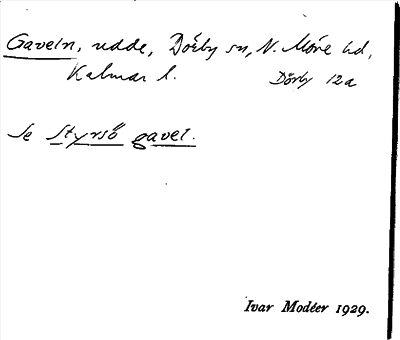 Gaveln, udde, Dörby sn, N. Möre hd,
Kalmar l. Dörby 12a
Se Styrsö gavel.
Ivar Modéer 1929.